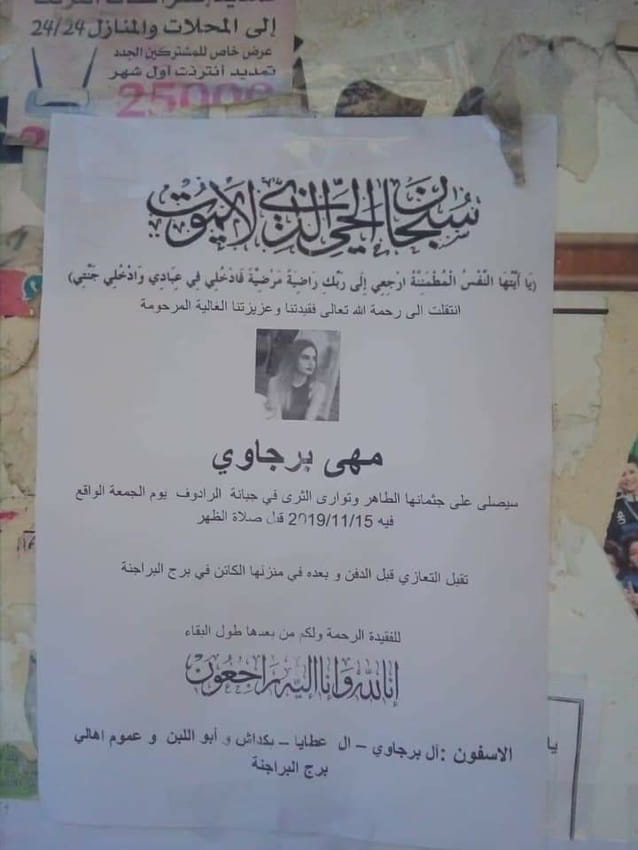 إلى المحلات والمنازل 24/24
عرض خاص للمشتركين الجدد
تمديد أنترنت أول شهر
25000
سبحان الحي الذي لا يموت
(يَا أَيَّتُهَا النَّفْسُ الْمُطْمَئِنَّةُ ارْجَعِي إِلَى رَبِّكِ رَاضِيَةً مَرْضِيَّةً فَادْخُلِي فِي عِبَادِي وَادْخُلِي جَنَّتِي)
انتقلت الى رحمة الله تعالى فقيدتنا وعزيزتنا الغالية المرحومة
مهى برجاوي
سيصلى على جثمانها الطاهر وتوارى الثرى في جبانة الرادوف يوم الجمعة الواقع
فيه 2019/11/15 قبل صلاة الظهر
تقبل التعازي قبل الدفن و بعده في منزلها الكائن في برج البراجنة
للفقيدة الرحمة ولكم من بعدها طول البقاء
إنا لله وإنا إليه راجعون
الاسفون :آل برجاوي – ال عطايا – بكداش و أبو اللبن و عموم اهالي
برج البراجنة
يا